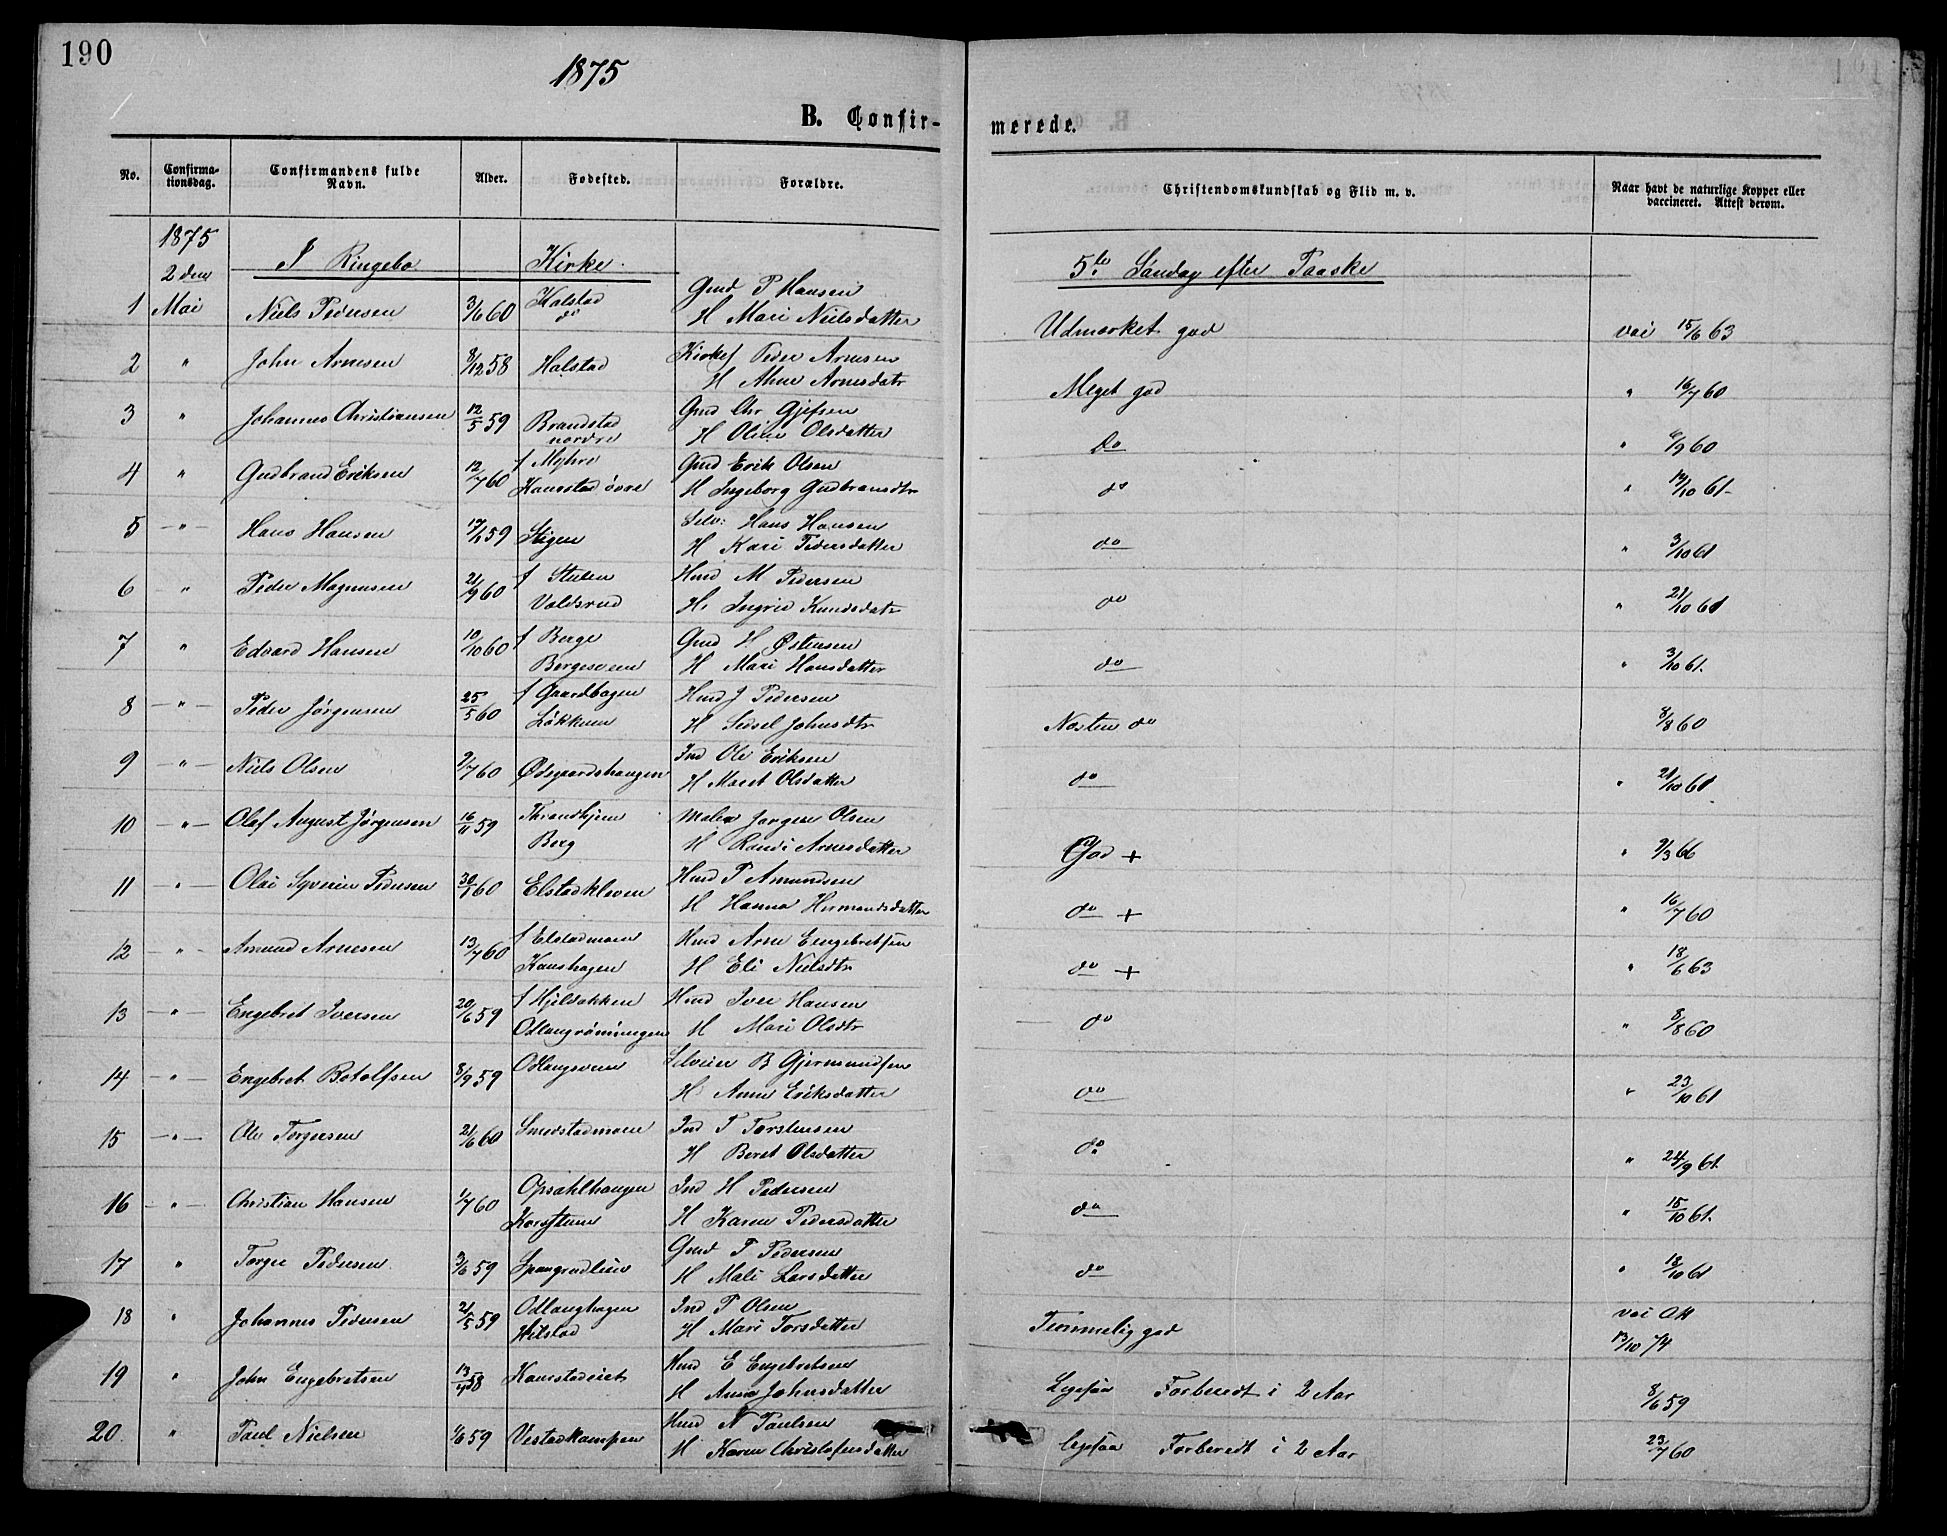 190
1875
B. Confir-
merede.
No. Confirma-tionsdag. Confirmandens fulde Navn. Alder. Fødested. Forældre. Christendomskundskab og Flid m. v. Naar havt de naturlige Kopper eller vaccineret. Attest derom.
1875
2den I Ringebo Kirke. 5te Søndag efter Paaske
1 Mai Niels Pedersen 3/6 60 Kalstad do Gmd P Hansen
H Mari Nielsdatter Udmærket god vac 15/6 63
2 " John Arnesen 8/12 58 Halstad Kirkes Peder Arnesen
H Ahne Arnesdatr Meget god " 16/7 60
3 " Johannes Christiansen 12/5 59 Brandstad nordre Gmd Chr Gjefsen
H Oline Olsdatter Do " 6/9 60
4 " Gudbrand Eriksen 12/7 60 f Myhre Gmd Erik Olsen
Kanrstad øvre H Ingeborg Gudbransdtr do " 14/10 61-
5 -"- Hans Hansen 59 Stigen Selv: Hans Hansen
H Kari Pedersdatter do " 3/10 61
6 - " Peder Magnusen 21/9 60 f Stulen Hmd M Pedersen
Valdsrud H. Ingrid Knudsdatr do " 21/10 61
7 " Edvard Hansen 10/10 60 f Berge Gmd H. Østensen
Bergesveen H Mari Hansdatter do " 3/10 61.
8 -"- Peder Jørgensen 25/5 60 f Gaardhagen Hmd J Pedersen
Løkken H Sidsel Johnsdtr Næsten do 8/8 60
9 -"- Niels Olsen 2/7 60 Ødegaardshaugen Ind Ole Eriksen
H Marit Olsdatter do " 21/10 61
10 -"- Olaf August Jørgensen 16/11 59 Throndhjem Maler Jørgen Olsen
Berg H Randi Arnesdatter God + " 9/3 66
11 -"- Olai Syverin Pedersen 30/1 60 Elstadkleven Hmd P Amundsen
H Hanna Hermandsdatter do + " 16/7 60
12 -"- Amund Arnesen 13/7 60 f Elstadmoen Hmd Arne Engebretsen
Kanshagen H Eli Nielsdtr do + " 18/6 63
13 -"- Engebret Iversen 20/6 59 f Hjelsakken Hmd Iver Hansen
Odlaugrømningen H Mari Olsdtr do " 8/8 60
14 -"- Engebret Botolfsen 8/9 59 Odlaugsveen Selveier B Gjermundsen
H Anne Eriksdatter do " 23/10 61
15 -"- Ole Torgersen 21/6 60 Smedstadmoen Ind T Torstensen
H Beret Olsdatter do " 24/9 61.
16 -"- Christian Hansen 1/7 60 Opsahlhaugen Ind H Pedersen
H Karen Pedersdatter do " 15/10 61.
17 " Torger Pedersen. 3/6 59 Spangrudlien Gmd P Pedersen
H Mali Larsdatter do " 18/10 61
18 " Johannes Pedersen 21/5 59 Odlaughagen Ind P Olsen
Hilstad H Mari Torsdatter Temmelig god vac Att
13/10 74
19 " John Engebretsen 13/4 58 Kanrstadeiet Hmd E Engebretsen
H Anna Johnsdatter Ligesaa Forberedt i 2 Aar 8/6 59
20. " Paul Nielsen 1/6 59 Vestadkampen Hmd N Paulsen
H Karen Christofersdatter ligesaa Forberedt i 2 Aar 23/7 60